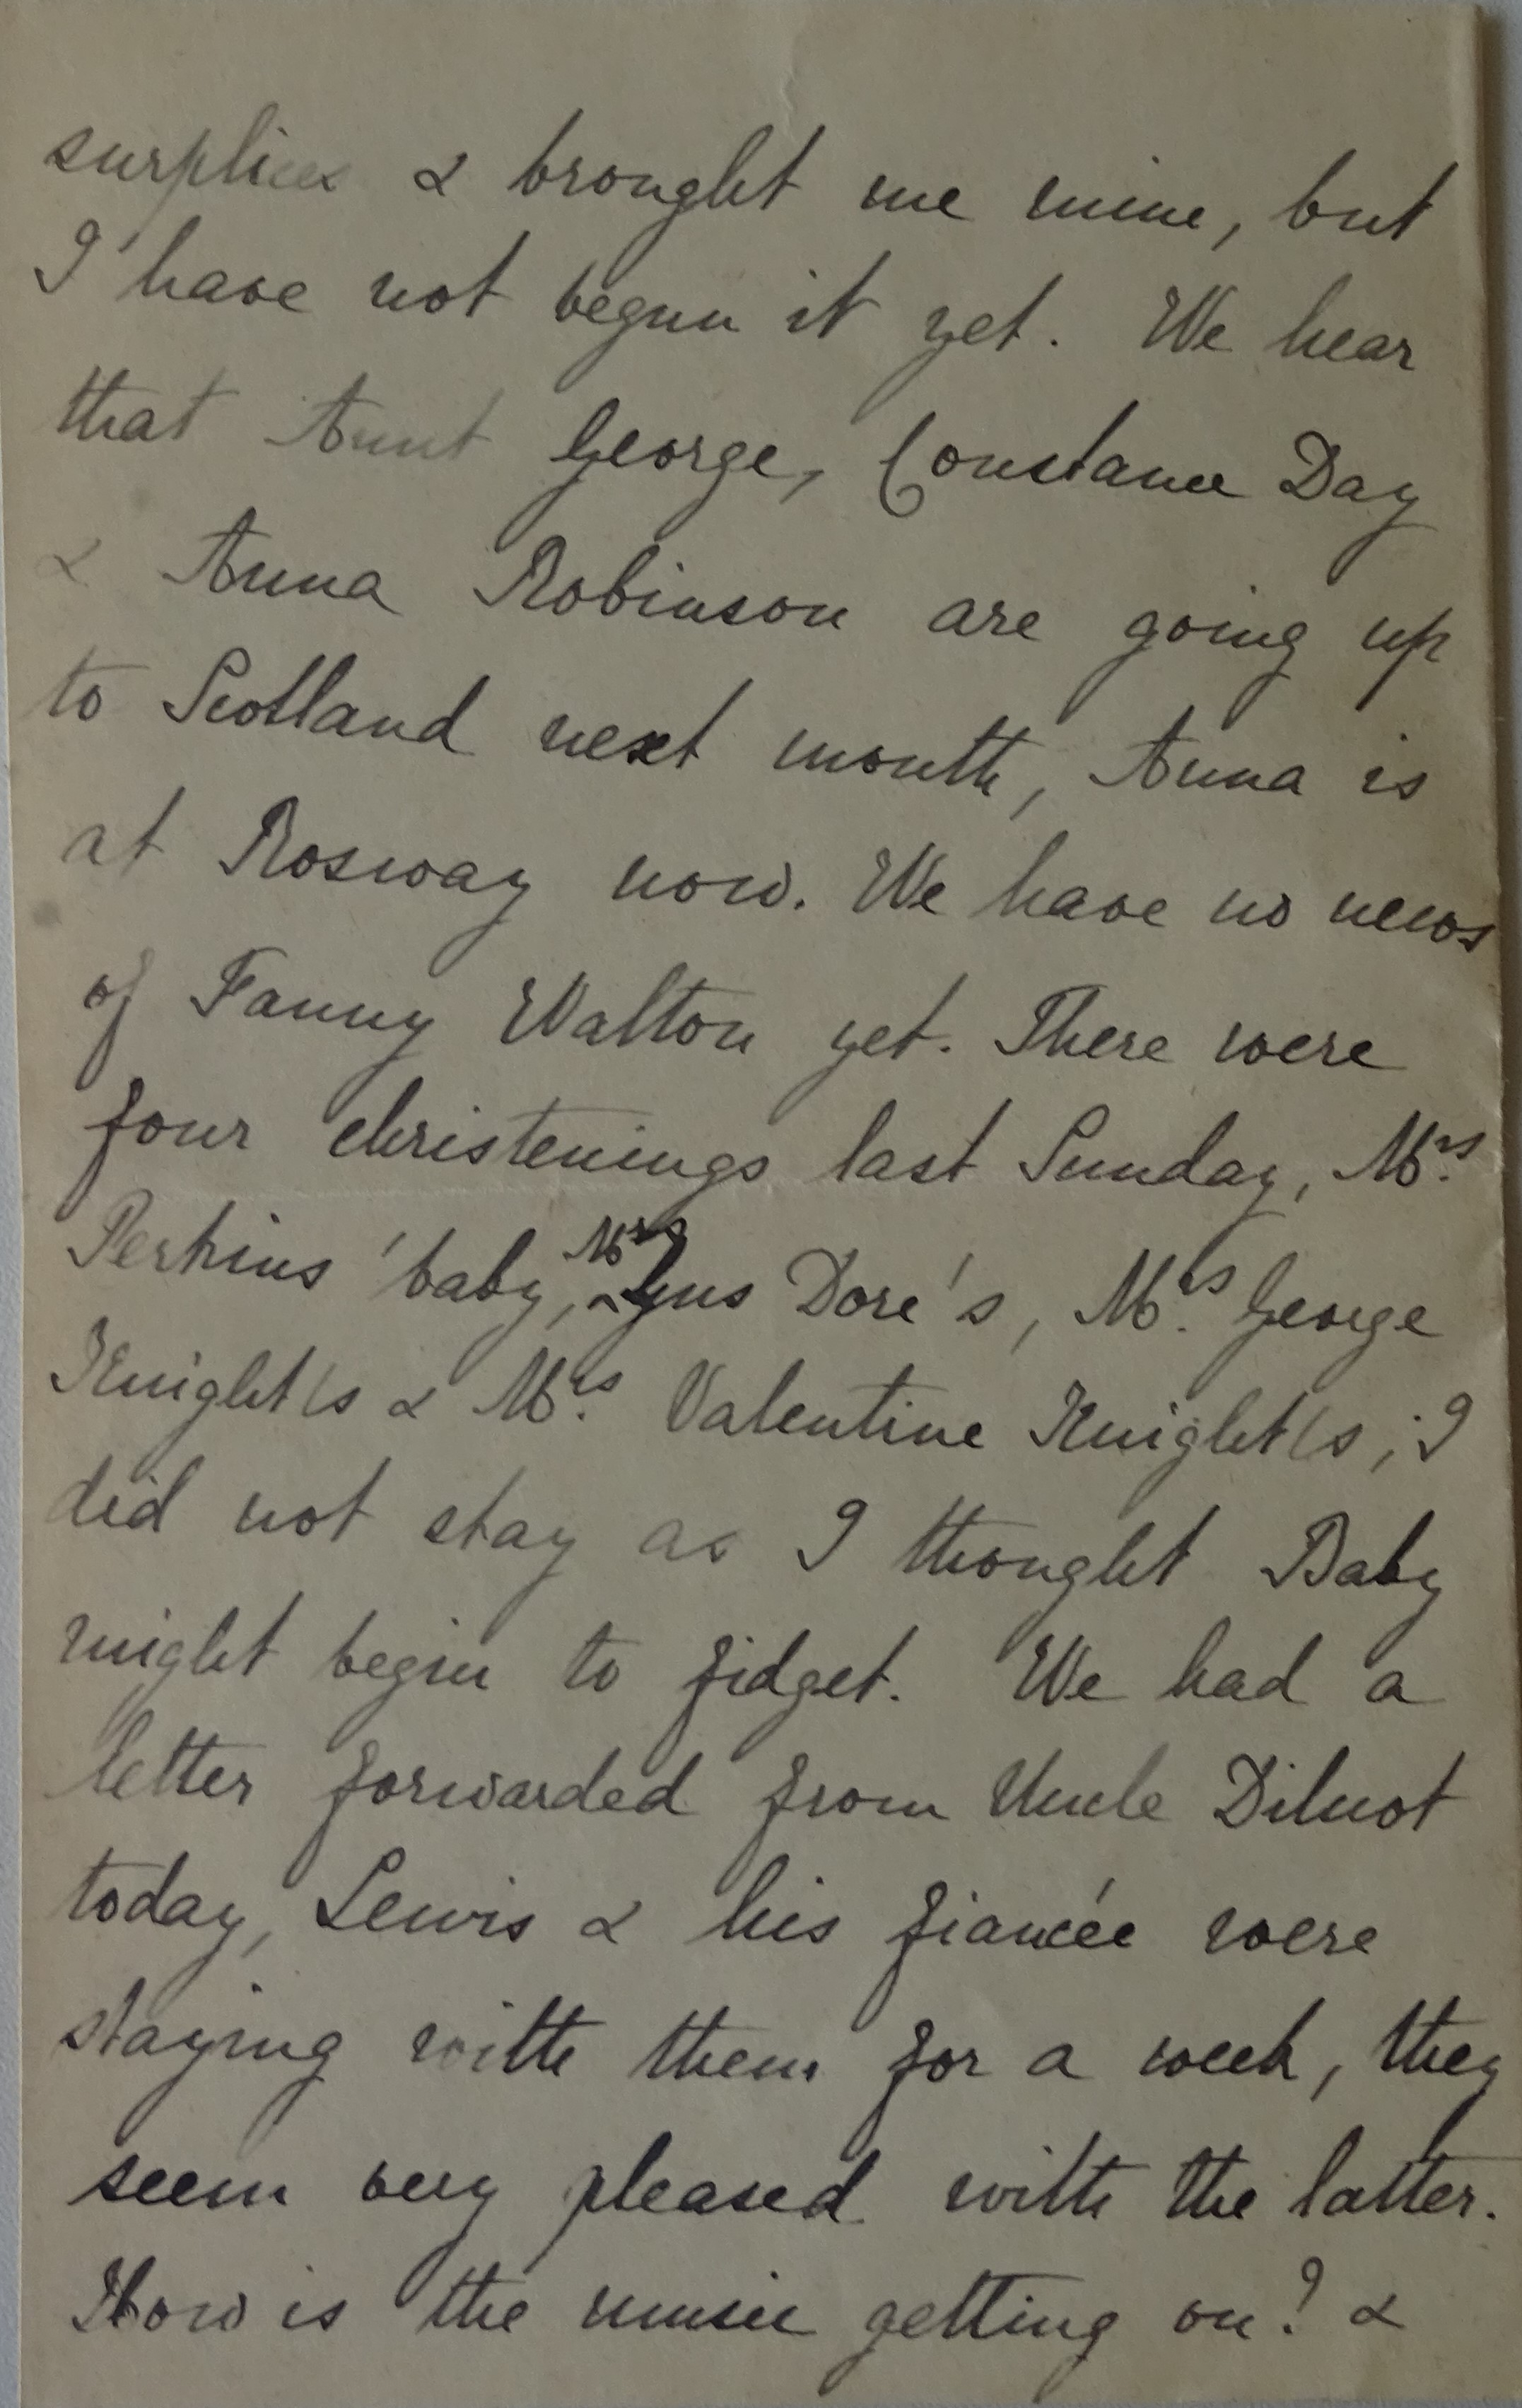 surplices & brought me mine, but
I have not begun it yet. We hear
that Aunt George, Constance Day
& Anna Robinson are going up
to Scotland next month, Anna is
at Rosway now. We have no news
of Fanny Walton yet. There were
four christenings last Sunday, Mrs.
Perkins' baby, Mrs Gus Dore's, Mrs. George
Knight's & Mrs. Valentine Knight's; I
did not stay as I thought Baby
might begin to fidget. We had a
letter forwarded from Uncle Dilnot
today, Lewis & his fiancée were
staying with them for a week, they
seem very pleased with the latter.
How is the music getting on? &